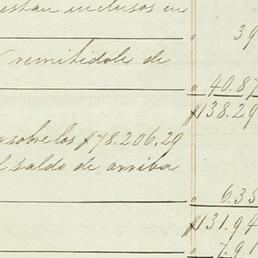 estan inclusos en " 39
remitidole de
" 40.87
$138.29
sobre los $78.206.29
l saldo de arriba
" 6.35
$131.94
" 7.91